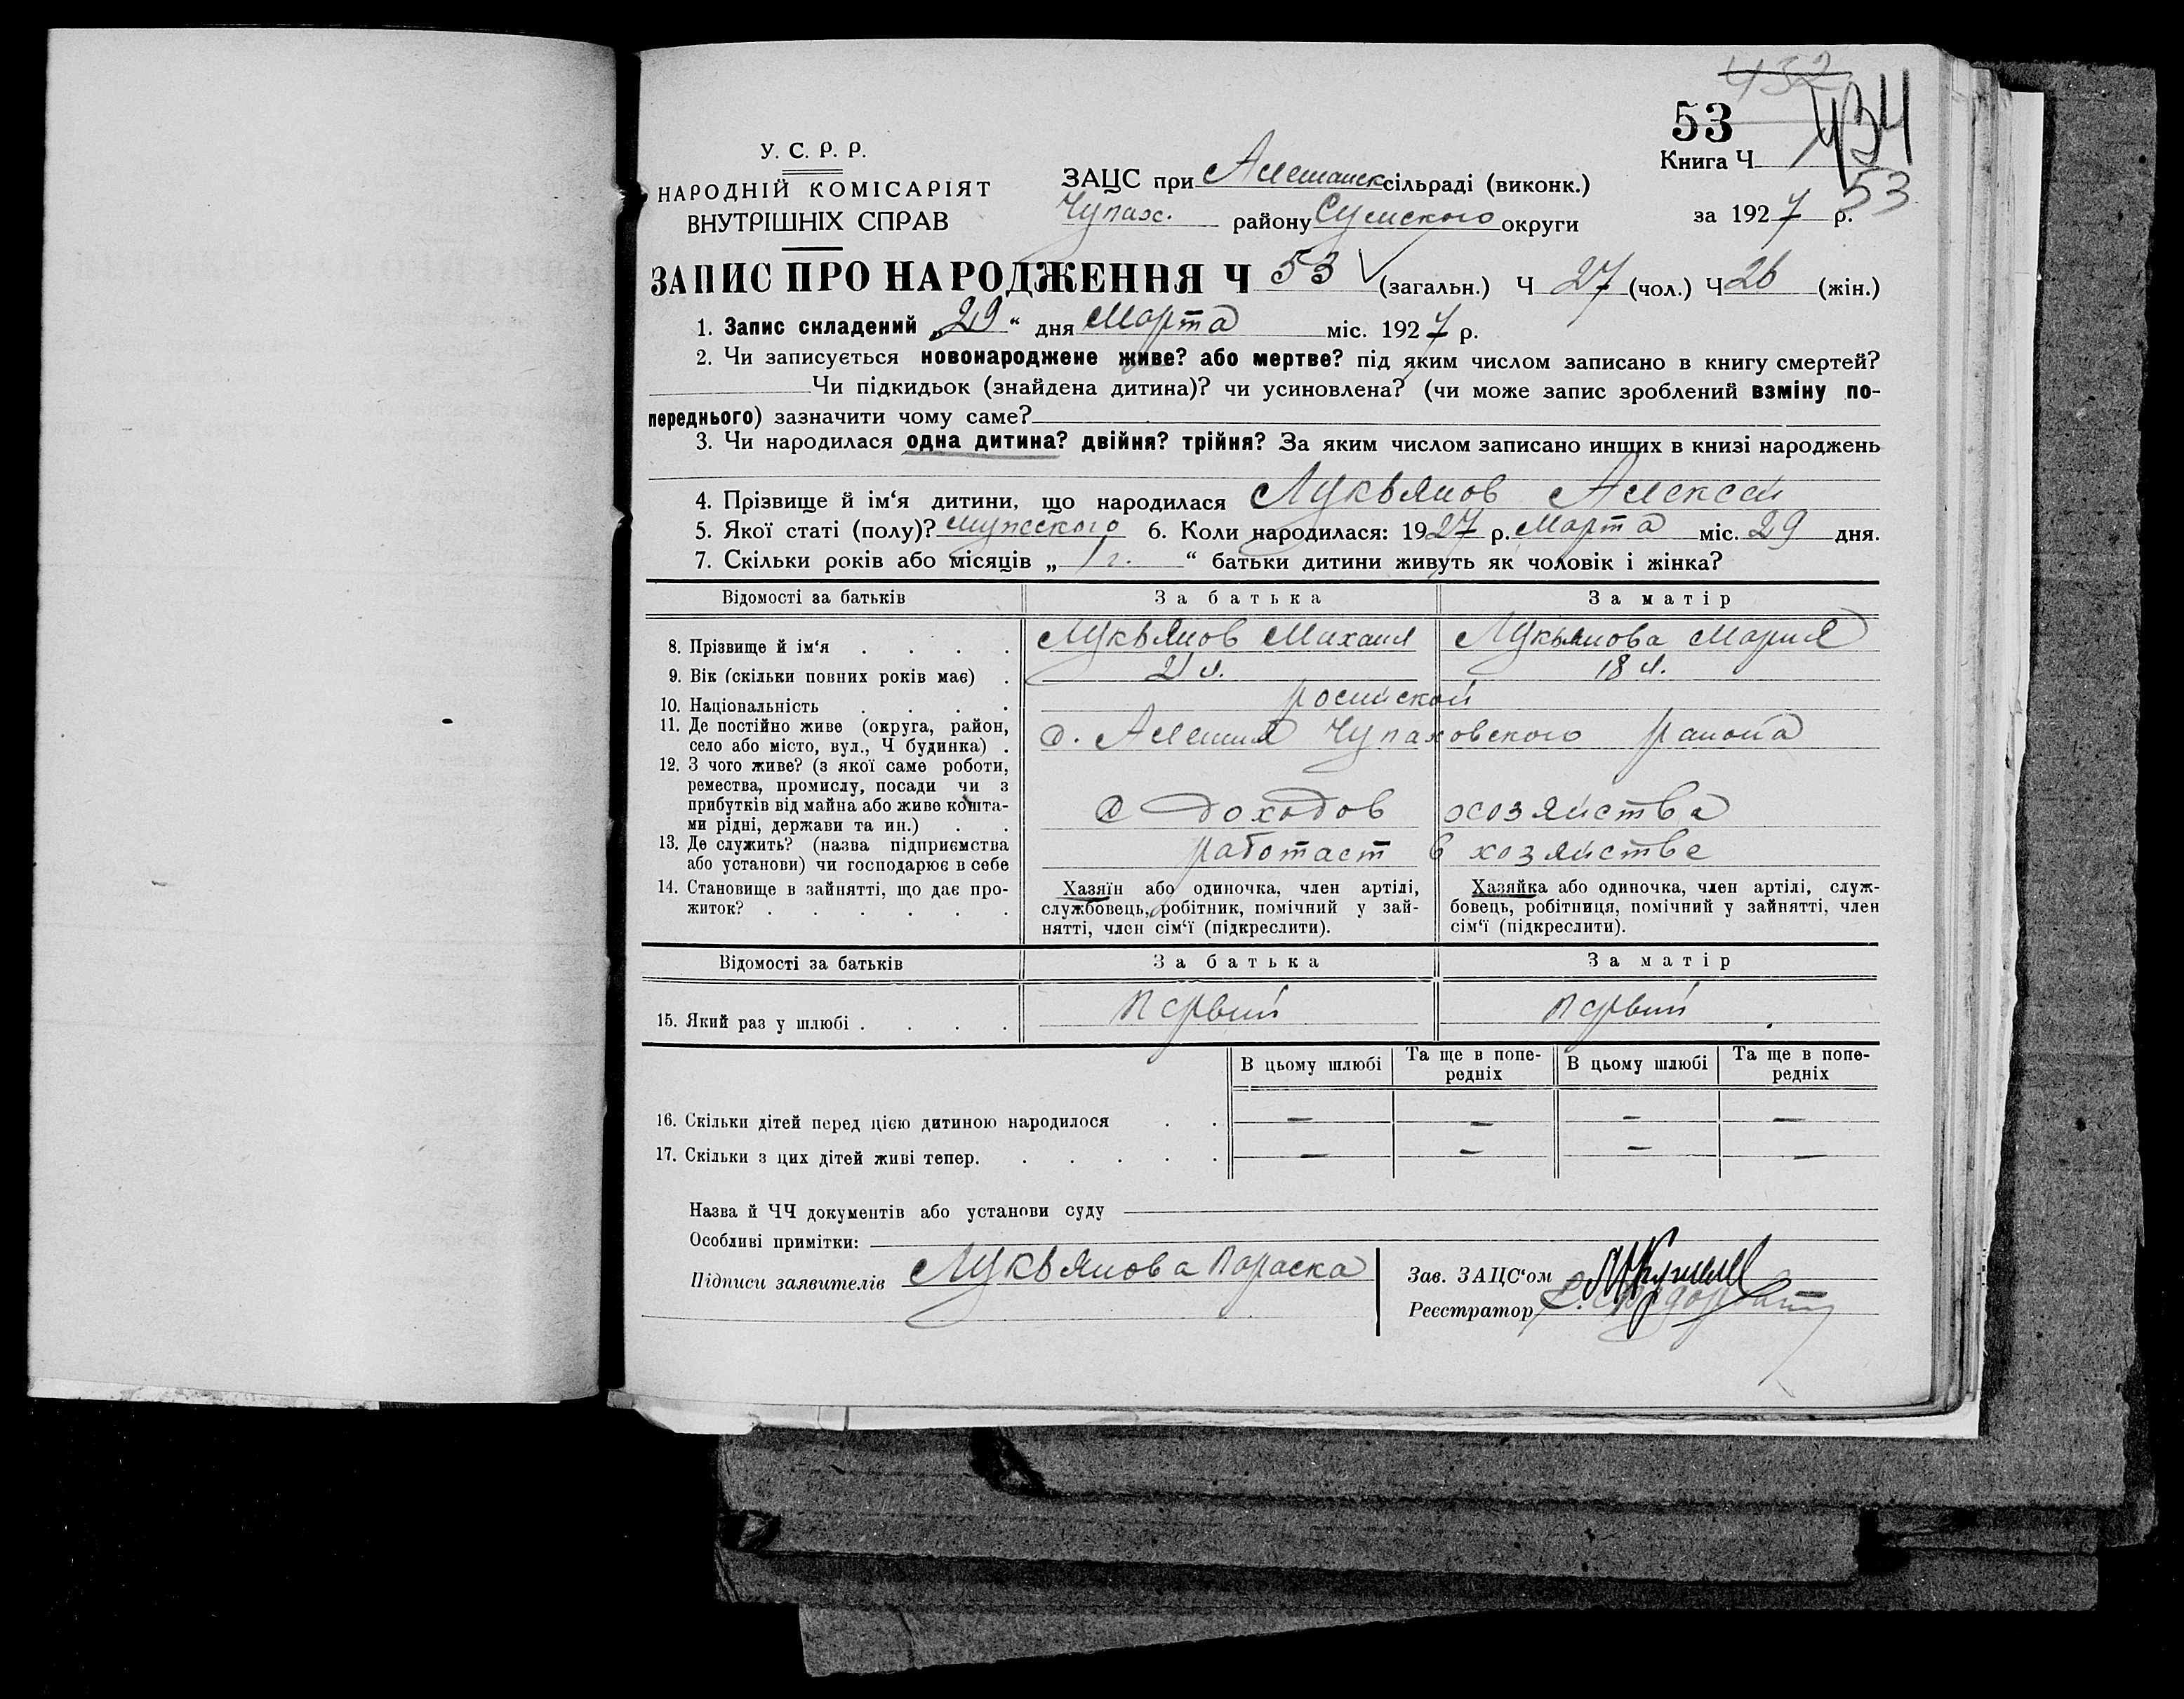 432
53
434
У. С. Р. Р.
Книга Ч
НАРОДНІЙ КОМІСАРІЯТ
ЗАЦС при Алешанск сільраді (виконк.)
53
ВНУТРІШНІХ СПРАВ
Чупах. району Сумского округи
за 1927 р.
ЗАПИС ПРО НАРОДЖЕННЯ Ч 53 (загальн.) Ч 27 (чол.) Ч 26 (жін.)
1. Запис складений „29“ дня Марта міс. 1927 р.
2. Чи записується новонароджене живе? або мертве? під яким числом записано в книгу смертей?
Чи підкидьок (знайдена дитина)? чи усиновлена? (чи може запис зроблений взміну по-
переднього) зазначити чому саме?
3. Чи народилася одна дитина? двійня? трійня? За яким числом записано инших в книзі народжень
4. Прізвище й ім‘я дитини, що народилася Лукьянов Алексей
5. Якої статі (полу)? мужеского 6. Коли народилася: 1927 р. Марта міс. 29 дня.
7. Скільки років або місяців „ 1 г. “ батьки дитини живуть як чоловік і жінка?
Відомості за батьків За батька За матір
8. Прізвище й ім‘я . . . . Лукьянов Михаил Лукьянова Мария
9. Вік (скільки повних років має) . 21 л. 18 л.
10. Національність . . . . росийской
11. Де постійно живе (округа, район,
село або місто, вул., Ч будинка) . с. Алешня Чупаховского района
12. З чого живе? (з якої саме роботи,
ремества, промислу, посади чи з
прибутків від майна або живе кошта-
ми рідні, держави та ин.) . . с доходов хозяйства
13. Де служить? (назва підприємства
або установи) чи господарює в себе работает в хозяйстве
14. Становище в зайнятті, що дає про-
житок? . . . . . .
Хазяїн або одиночка, член артілі,
службовець, робітник, помічний у зай-
нятті, член сім‘ї (підкреслити).
Хазяйка або одиночка, член артілі, служ-
бовець, робітниця, помічний у зайнятті, член
сім‘ї (підкреслити).
Відомості за батьків За батька За матір
15. Який раз у шлюбі . . . . первий первий
В цьому шлюбі Та ще в попе-
редніх В цьому шлюбі Та ще в попе-
редніх
16. Скільки дітей перед цією дитиною народилося . . — — — —
17. Скільки з цих дітей живі тепер. . . . . . — — — —
Назва й ЧЧ документів або установи суду
Особливі примітки:
Підписи заявителів Лукьянова Параска
Зав. ЗАЦС‘ом
Реєстратор